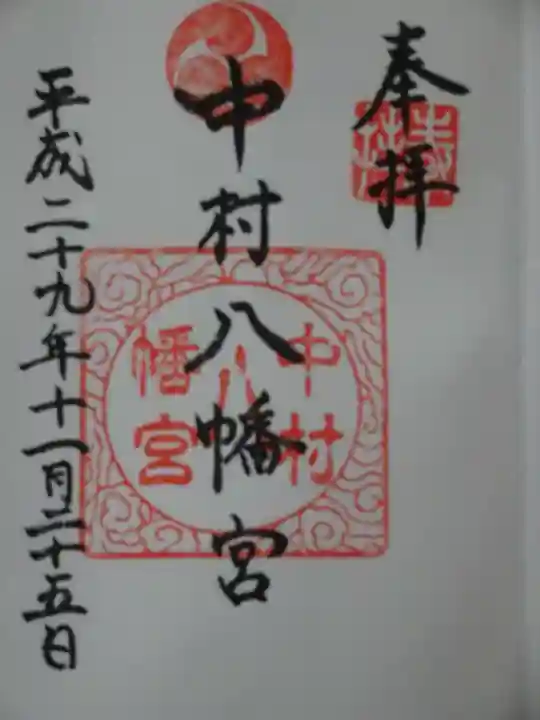 奉拝
中村八幡宮
中村
八
幡宮
平成二十九年十一月二十五日